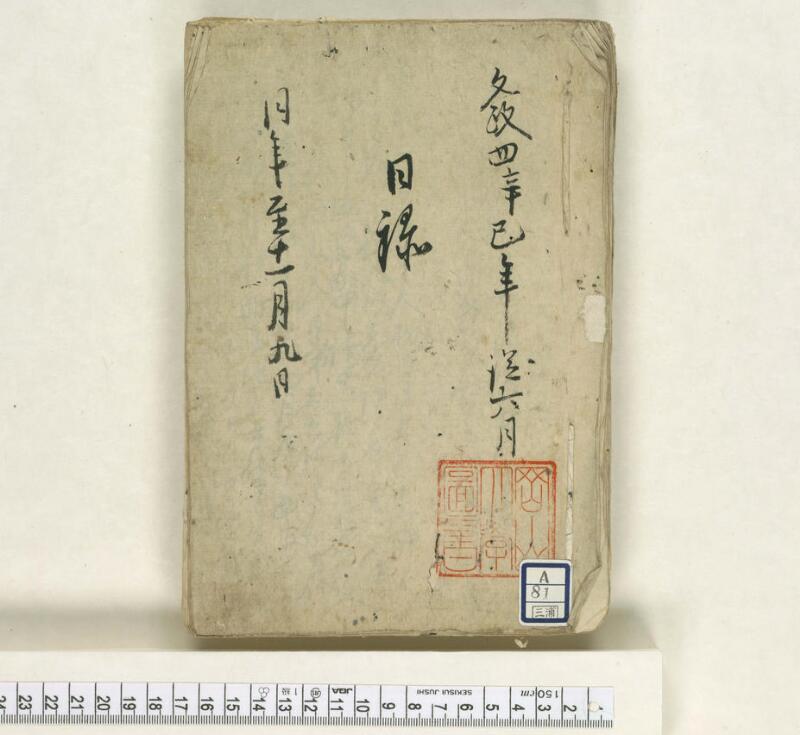 文政四辛巳年従六月
目録
同年至十一月九日
岡山
大学
図書
A
81
三浦
24 23 22 21 20 19 18 17 16 15 14 13 1級 12 11 JQA 10 9 8 SEKISUI JUSHI 7 6 5 4 150cm 3 2 1